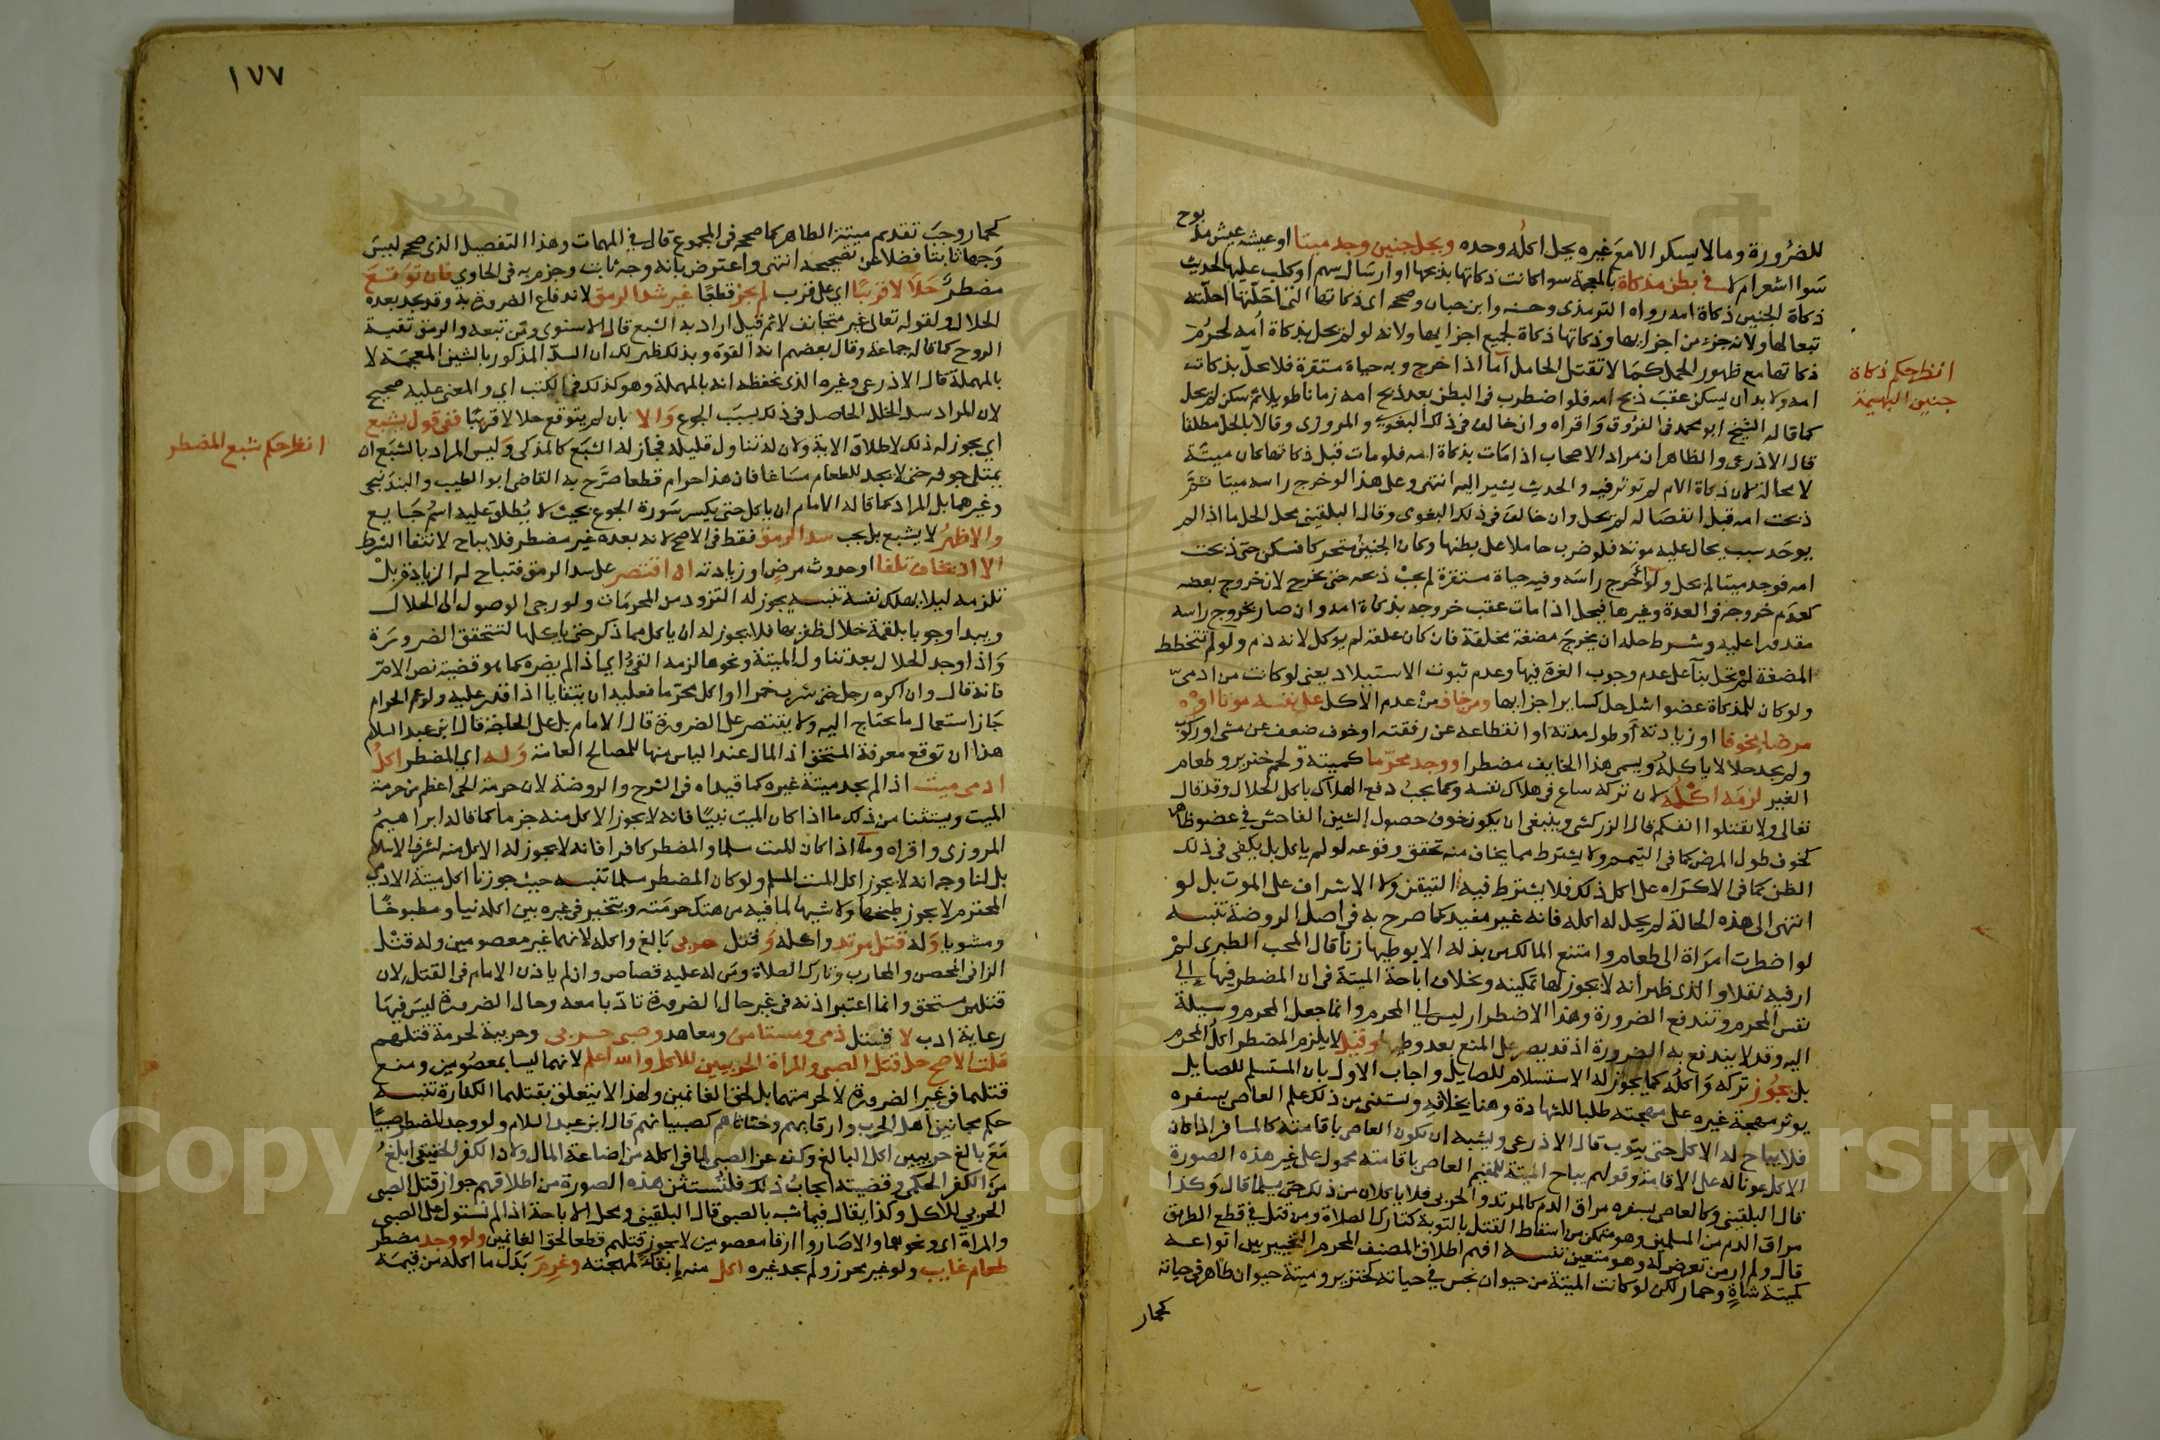 للضرورة وما لا يسكر الا مع غيره يحل اكله وحده ويحل جنين وجد ميتا او عيشه عيش مذبوح
سوا اشعر ام لا في بطن مذكاة بالمعجمة سوا كانت ذكاتها بذبحها او ارسال سهم او كلب عليها لحديث
ذكاة الجنين ذكاة امه رواه الترمذي وحسنه وابن حبان وصححه اي ذكاتها التي احلتها احلته
تبعا لها ولانه جزء من اجزايها وذكاتها ذكاة لجميع اجزايها ولانه لو لم يحل بذكاة امه لحرم
ذكاتها مع ظهور الحمل كما لا تقتل الحامل اما اذا خرج وبه حياة مستقرة فلا يحل بذكاة
امه ولا بد ان يسكن عقب ذبح امه فلو اضطرب في البطن بعد ذبح امه زمانا طويلا ثم سكن لم يحل
كما قاله الشيخ ابو محمد في الفروق واقراه وان خالف في ذلك البغوي والمروزي وقالا بالحل مطلقا
قال الاذرعي والظاهر ان مراد الاصحاب اذا مات بذكاة امه فلو مات قبل ذكاتها كان ميتة
لا محالة لان ذكاة الام لم تؤثر فيه والحديث يشير اليه انتهى وعلى هذا لو خرج راسه ميتا ثم
ذبحت امه قبل انفصاله لم يحل وان خالف في ذلك البغوي وقال البلقيني محل الحل ما اذا لم
يوجد سبب يحال عليه موته فلو ضرب حاملا على بطنها وكان الجنين متحركا فسكن حتى ذبحت
امه فوجد ميتا لم يحل ولو اخرج راسه وفيه حياة مستقرة لم يجب ذبحه حتى يخرج لان خروج بعضه
كعدم خروجه في العدة وغيرها فيحل اذا مات عقب خروجه بذكاة امه وان صار بخروج راسه
مقدورا عليه وشرط حله ان يخرج مضغة مخلقة فان كان علقة لم يوكل لانه دم ولو لم تتخطط
المضغة لم تحل بنا على عدم وجوب الغرة فيها وعدم ثبوت الاستيلاد يعني لو كانت من ادمي
ولو كان للمذكاة عضو اشل حل كساير اجزايها ومن خاف من عدم الاكل على نفسه موتا او
مرضا مخوفا او زيادته او طول مدته او انقطاعه عن رفقته او خوف ضعف عن مشي او ركوب
ولم يجد حلالا ياكله ويسمى هذا الخايف مضطرا ووجد محرما كميتة ولحم خنزير وطعام
الغير لزمه اكله لان تركه ساع في هلاك نفسه وكما يجب دفع الهلاك باكل الحلال وقد قال
تعالى ولا تقتلوا انفسكم قال الزركشي وينبغي ان يكون خوف حصول الشين الفاحش في عضو ظاهر
كخوف طول المرض كما في التيمم ولا يشترط مما يخاف منه تحقق وقوعه لو لم ياكل بل يكفي في ذلك
الظن كما في الاكراه على اكل ذلك فلا يشترط فيه التيقن ولا الاشراف على الموت بل لو
انتهى الى هذه الحالة لم يحل له اكله فانه غير مفيد كما صرح به في اصل الروضة تنبيه
لو اضطرت امراة الى طعام وامتنع المالك من بذله الا بوطيها زنا قال المحب الطبري لم
ار فيه نقلا والذي ظهر انه لا يجوز لها تمكينه وبخلاف اباحة الميتة في ان المضطر فيها الى
نفس المحرم وتندفع الضرورة وهذا الاضطرار ليس الى المحرم وانما جعل المحرم وسيلة
اليه وقد لا يندفع به الضرورة اذ قد يصر على المنع بعد وطيها وقيل لا يلزم المضطر اكل المحرم
بل يجوز تركه واكله كما يجوز له الاستسلام للصايل واجاب الاول بان المستسلم للصايل
يوثر مهجة غيره على مهجته طلبا للشهادة وهنا بخلافه ويستثنى من ذلك علم العاصي بسفره
فلا يباح له الاكل حتى يتوب قال الاذرعي ويشبه ان يكون العاصي باقامته كالمسافر اذا كان
الاكل عونا له على الاقامة وقولهم يباح الميتة للمقيم العاصي باقامته محمول على غير هذه الصورة
قال البلقيني وكالعاصي بسفره مراق الدم كالمرتد والحربي فلا ياكلان من ذلك حتى يسلما قال وكذا
مراق الدم من المسلمين وهو متمكن من اسقاط القتل بالتوبة كتارك الصلاة ومن قتل في قطع الطريق
قال ولم ار من تعرض له وهو متعين تنبيه افهم اطلاق المصنف المحرم التخيير بين انواعه
كميتة شاة وحمار لكن لو كانت الميتة من حيوان نجس في حياته كخنزير وميتة حيوان طاهر في حياته
كحمار
انظر حكم ذكاة
جنين البهيمة
١٧٧
كحمار وجب تقديم ميتة الطاهر كما صححه في المجموع قال في المهمات وهذا التفصيل الذي صححه ليس
وجها ثابتا فضلا عن تصحيحه انتهى واعترض بانه وجه ثابت وجزم به في الحاوي فان توقع
مضطر حلالا قريبا اي على قرب لم يجز قطعا غير سد الرمق لاندفاع الضرورة به وقد يجد بعده
الحلال ولقوله تعالى غير متجانف لاثم قيل اراد به الشبع قال الاسنوي ومن تبعه والرمق بقية
الروح كما قاله جماعة وقال بعضهم انه القوة وبذلك ظهر لك ان السد المذكور بالشين المعجمة لا
بالمهملة قال الاذرعي وغيره الذي نحفظه انه بالمهملة وهو كذلك في الكتب اي والمعنى عليه صحيح
لان المراد سد الخلل الحاصل في ذلك بسبب الجوع والا بان لم يتوقع حلالا قريبا ففي قول يشبع
اي يجوز له ذلك لاطلاق الاية ولان له تناول قليله فجاز له الشبع كالمذكى وليس المراد بالشبع ان
يمتلي جوفه حتى لا يجد للطعام مساغا فان هذا حرام قطعا صرح به القاضي ابو الطيب والبندنيجي
وغيرهما بل المراد كما قاله الامام ان ياكل حتى يكسر سورة الجوع بحيث لا يطلق عليه اسم جايع
والاظهر لا يشبع بل يجب سد الرمق فقط في الاصح لانه بعده غير مضطر فلا يباح لانتفا الشرط
الا ان يخاف تلفا او حدوث مرض او زيادته ان اقتصر على سد الرمق فتباح له الزيادة بل
تلزمه ليلا يهلك نفسه تنبيه يجوز له التزود من المحرمات ولو رجى الوصول الى الحلال
ويبدا وجوبا بلقمة حلال ظفر بها فلا يجوز له ان ياكل مما ذكر حتى ياكلها لتتحقق الضرورة
واذا وجد الحلال بعد تناول الميتة ونحوها لزمه القي اي اذا لم يضره كما هو قضية نص الام
فانه قال وان اكره رجل حتى شرب خمرا او اكل محرما فعليه ان يتقايا اذا قدر عليه ولو عم الحرام
جاز استعمال ما يحتاج اليه ولا يقتصر على الضرورة قال الامام بل على الحاجة قال ابن عبد السلام
هذا ان توقع معرفة المستحق اذ المال عند الياس منها للمصالح العامة وله اي المضطر اكل
ادمي ميت اذا لم يجد ميتة غيره كما قيداه في الشرح والروضة لان حرمة الحي اعظم من حرمة
الميت ويستثنا من ذلك ما اذا كان الميت نبيا فانه لا يجوز الاكل منه جزما كما قاله ابراهيم
المروزي واقراه وما اذا كان الميت مسلما والمضطر كافرا فانه لا يجوز له الاكل منه لشرف الاسلام
بل لنا وجه انه لا يجوز اكل الميت المسلم ولو كان المضطر مسلما تنبيه حيث جوزنا اكل ميتة الادمي
المحترم لا يجوز طبخها ولا شيها لما فيه من هتك حرمته ويتخير في غيره بين اكله نيا ومطبوخا
ومشويا وله قتل مرتد واكله و قتل حربي بالغ واكله لانهما غير معصومين وله قتل
الزاني المحصن والمحارب وتارك الصلاة ومن له عليه قصاص وان لم ياذن الامام في القتل لان
قتلهم مستحق وانما اعتبر اذنه في غير حال الضرورة تادبا معه وحال الضرورة ليس فيها
رعاية ادب لا قتل ذمي ومستامن ومعاهد وصبي حربي وحربية لحرمة قتلهم
قلت الاصح حل قتل الصبي والمراة الحربيين للاكل والله اعلم لانهما ليسا بمعصومين ومنع
قتلهما في غير الضرورة لا لحرمتهما بل لحق الغانمين ولهذا لا يتعلق بقتلهما الكفارة تنبيه
حكم مجانين اهل الحرب وارقايهم وخناثاهم كصبيانهم قال ابن عبد السلام ولو وجد المضطر صبيا
مع بالغ حربيين اكل البالغ وكف عن الصبي لما في اكله من اضاعة المال ولان الكفر الحقيقي ابلغ
من الكفر الحكمي وقضيته ايجاب ذلك فلتستثن هذه الصورة من اطلاقهم جواز قتل الصبي
الحربي للاكل وكذا يقال فيما شبه بالصبي قال البلقيني ومحل الاباحة اذا لم نستول على الصبي
والمراة اي ونحوهما والا صاروا ارقا معصومين لا يجوز قتلهم قطعا لحق الغانمين ولو وجد مضطر
طعام غايب ولو غير محرز ولم يجد غيره اكل منه ابقاء لمهجته وغرم بدل ما اكله من قيمة
انظر حكم شبع المضطر
Copyright © King Saud University